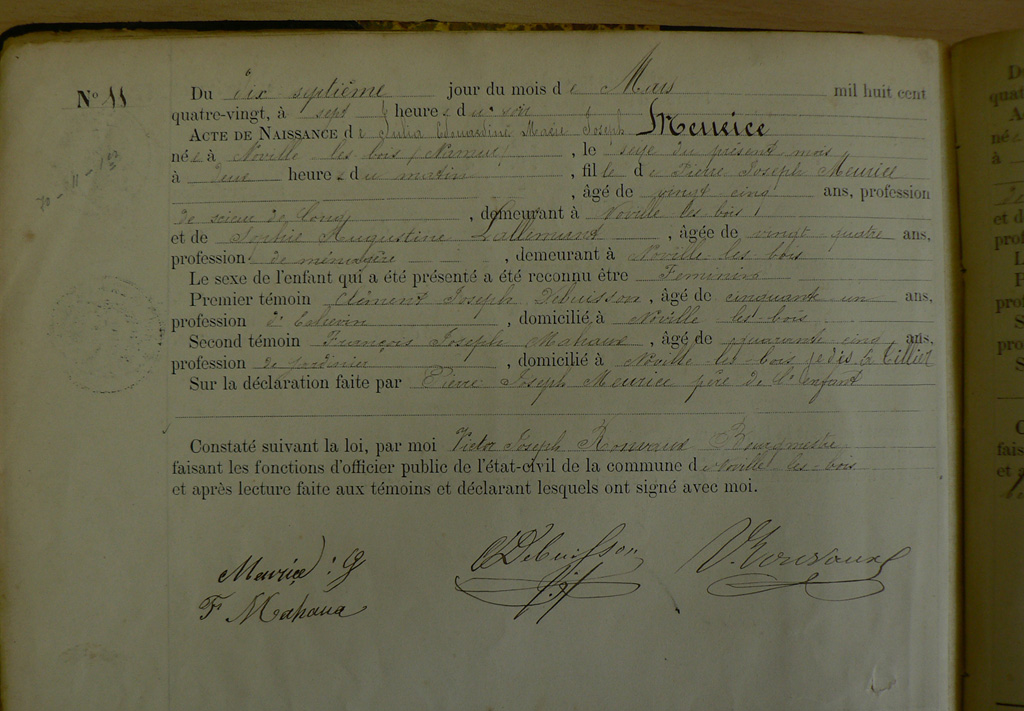 Nº 11
Du dix septième jour du mois de Mars mil huit cent
quatre-vingt, à sept heures du soir
ACTE DE NAISSANCE de Julia Edouardine Marie Joseph Meurice
née à Noville les bois (Namur), le seize du présent mois,
à deux heures du matin, fille de Pierre Joseph Meurice
, âgé de vingt cinq ans, profession
de scieur de long, demeurant à Noville les bois,
et de Sophie Augustine Lallemand, âgée de vingt quatre ans,
profession de ménagère, demeurant à Noville les bois
Le sexe de l'enfant qui a été présenté a été reconnu être Féminin
Premier témoin Clément Joseph Debuisson, âgé de cinquante un ans,
profession d', domicilié à Noville les-bois
Second témoin François Joseph Mahaux, âgé de quarante cinq ans,
profession de jardinier, domicilié à Noville les-bois je dis
Sur la déclaration faite par Pierre Joseph Meurice père de l'enfant
Constaté suivant la loi, par moi Victor Joseph Ronvaux Bourgmestre
faisant les fonctions d'officier public de l'état-civil de la commune de Noville les-bois
et après lecture faite aux témoins et déclarant lesquels ont signé avec moi.
Meurice
Debuisson
V. Ronvaux
F Mahaux